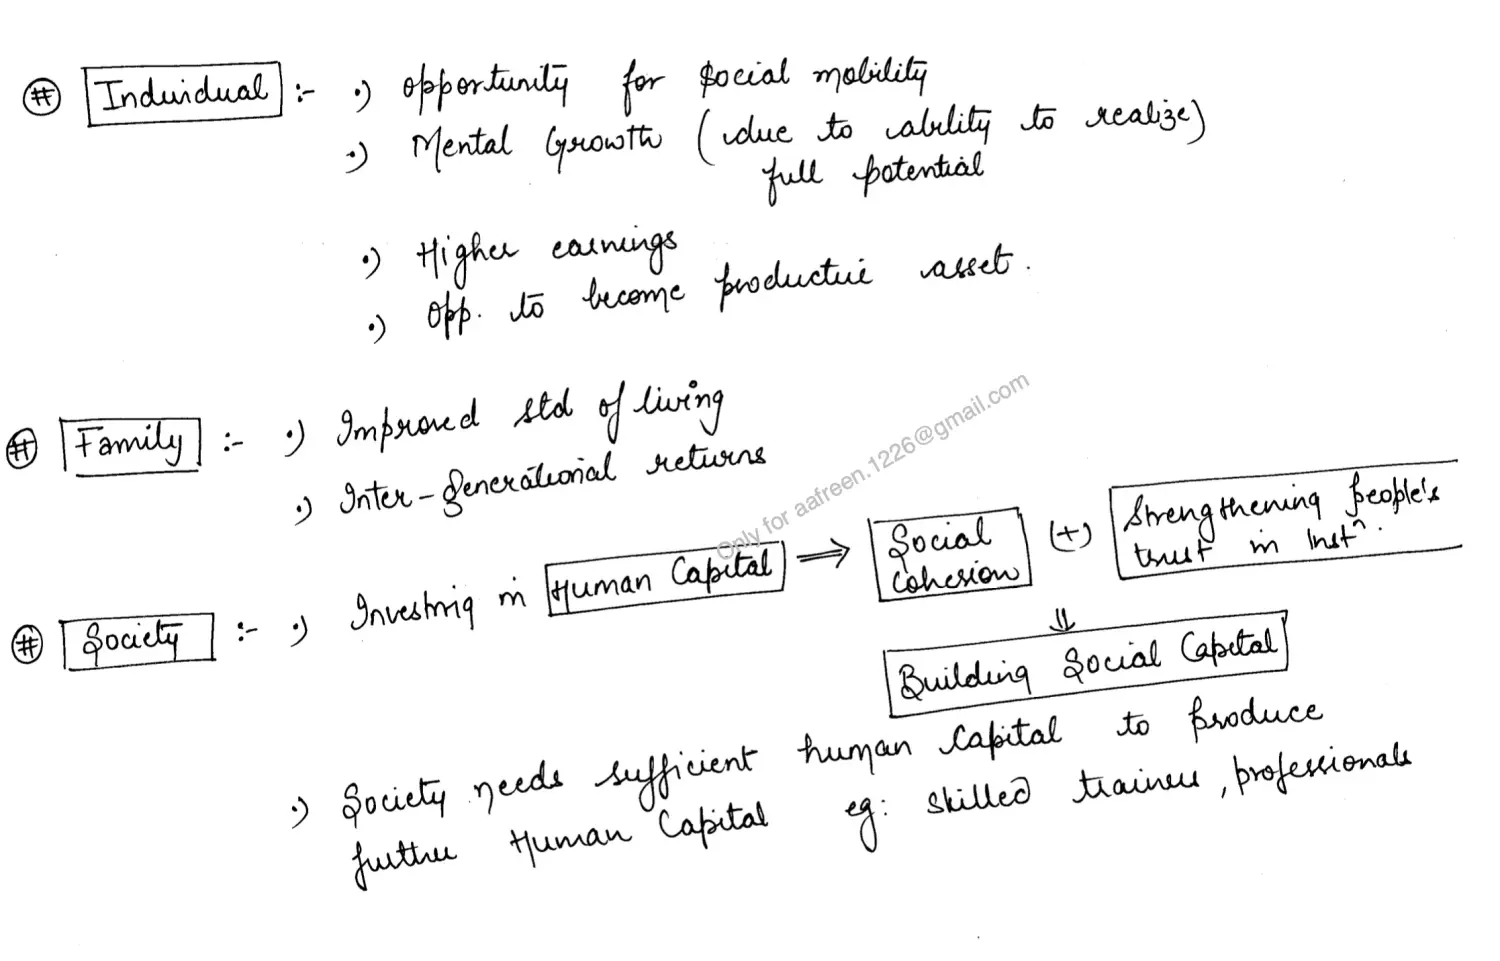 # Individual :- •) Opportunity for Social mobility
•) Mental Growth (due to ability to realize)
full potential
•) Higher earnings
•) Opp. to become productive asset.
# Family :- •) Improved std of living
•) Inter-generational returns
Only for aafreen.1226@gmail.com
# Society :- •) Investing in Human Capital ⇒ Social cohesion (+) Strengthening people's trust in Instⁿ.
⇓
Building Social Capital
•) Society needs sufficient human Capital to produce
further Human Capital eg: skilled trainers, professionals